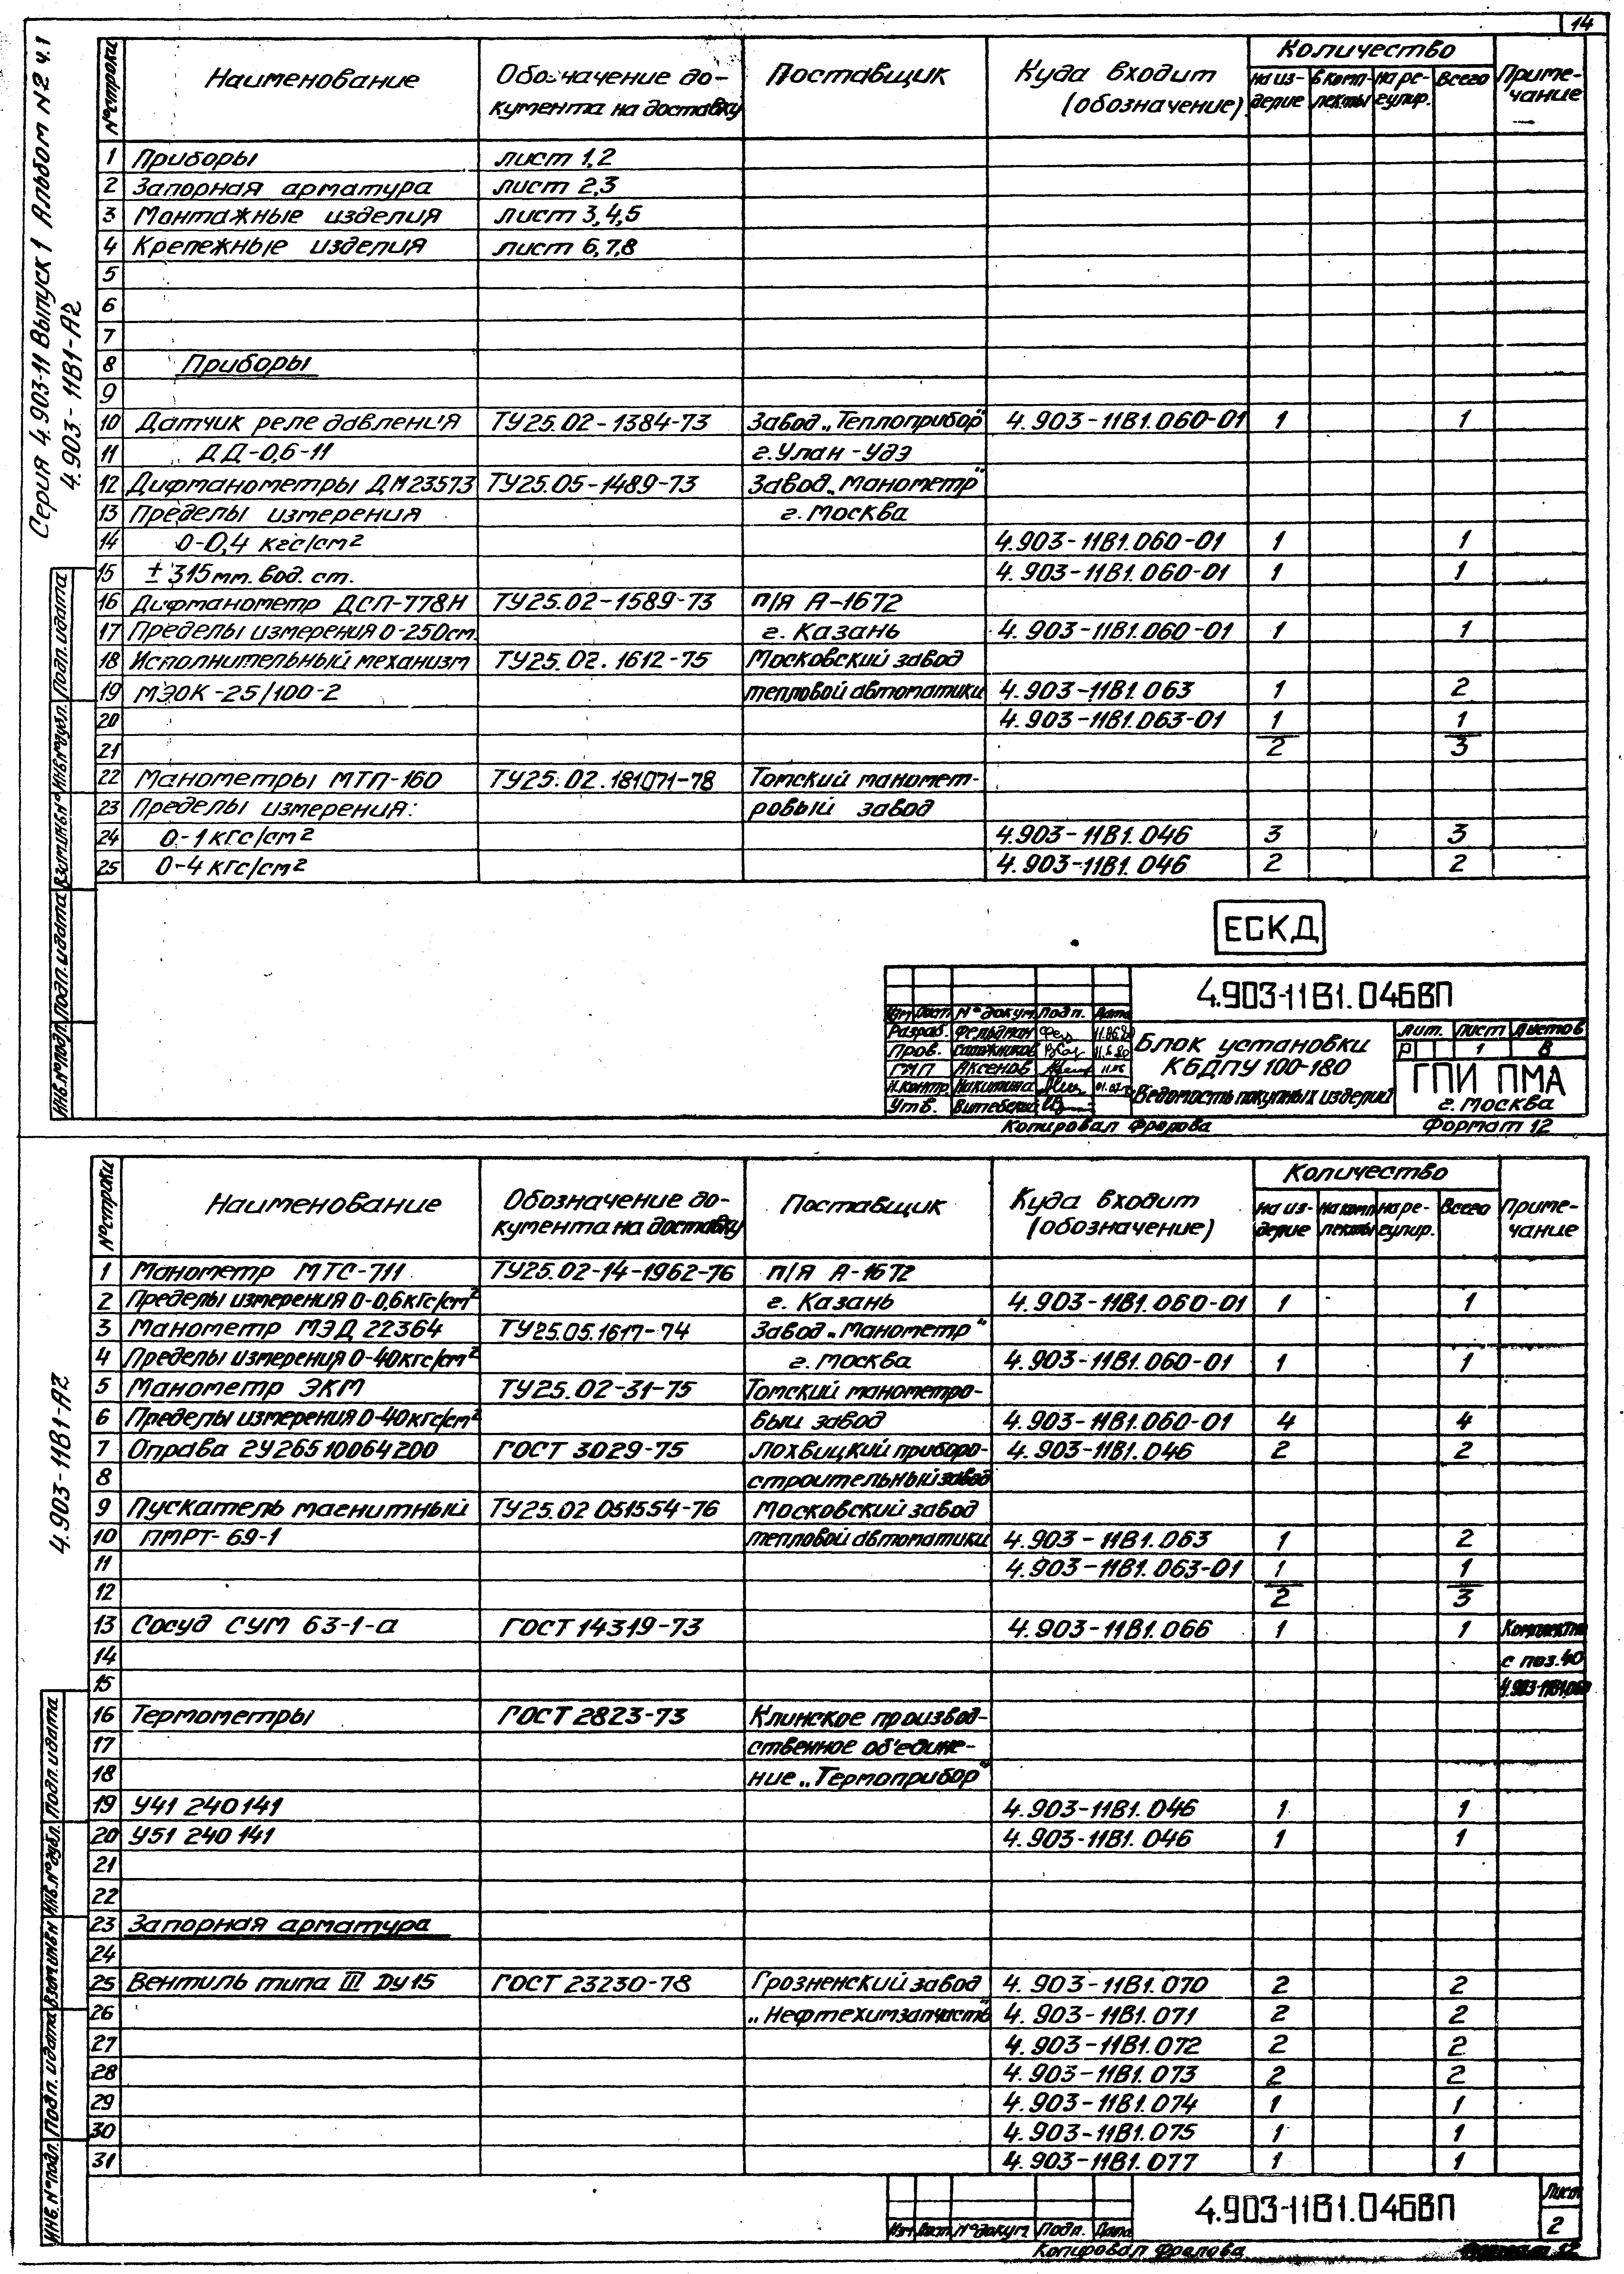 14
Серия 4.903-11 Выпуск 1 Альбом №2 ч.1
4.903-11В1-А2
№строки Наименование Обозначение до-кумента на доставку Поставщик Куда входит (обозначение) Количество на из-делие в комп-лекты на ре-гулир. Всего Приме-чание
1 Приборы лист 1,2
2 Запорная арматура лист 2,3
3 Монтажные изделия лист 3,4,5
4 Крепежные изделия лист 6,7,8
5
6
7
8 Приборы
9
10 Датчик реле давления ТУ25.02-1384-73 Завод „Теплоприбор" 4.903-11В1.060-01 1 1
11 ДД-0,6-11 г.Улан-Удэ
12 Дифманометры ДМ23573 ТУ25.05-1489-73 Завод „Манометр"
13 Пределы измерения г.Москва
14 0-0,4 кгс/см² 4.903-11В1.060-01 1 1
15 ±315мм. вод. ст. 4.903-11В1.060-01 1 1
16 Дифманометр ДСП-778Н ТУ25.02-1589-73 п/я А-1672
17 Пределы измерения 0-250см. г. Казань 4.903-11В1.060-01 1 1
18 Исполнительный механизм ТУ25.02.1612-75 Московский завод
19 МЭОК-25/100-2 тепловой автоматики 4.903-11В1.063 1 2
20 4.903-11В1.063-01 1 1
21 2 3
22 Манометры МТП-160 ТУ25.02.181071-78 Томский маномет-
23 Пределы измерения: ровый завод
24 0-1кгс/см² 4.903-11В1.046 3 3
25 0-4 кгс/см² 4.903-11В1.046 2 2
Инв.№подл. Подп. и дата Взам.инв.№ Инв.№дубл. Подп. и дата
ЕСКД
4.903-11В1.046ВП
Изм Лист №докум. Подп. Дата
Разраб. Фельдман 11.06.80
Пров. 11.6.80
ГИП Аксенов
Н.контр. Никитина
Утв. Витебский
Блок установки
КБДПУ 100-180
Ведомость покупных изделий
Лит. Лист Листов
Р 1 8
ГПИ ПМА
г. Москва
Копировал Фролова Формат 12
4.903-11В1-А2
№строки Наименование Обозначение до-кумента на доставку Поставщик Куда входит (обозначение) Количество на из-делие на комп-лекты на ре-гулир. Всего Приме-чание
1 Манометр МТС-711 ТУ25.02-14-1962-76 п/я А-1672
2 Пределы измерения 0-0,6кгс/см² г. Казань 4.903-11В1.060-01 1 1
3 Манометр МЭД 22364 ТУ25.05.1617-74 Завод „Манометр"
4 Пределы измерения 0-40кгс/см² г. Москва 4.903-11В1.060-01 1 1
5 Манометр ЭКМ ТУ25.02-31-75 Томский манометро-
6 Пределы измерения 0-40кгс/см² вый завод 4.903-11В1.060-01 4 4
7 Оправа 2У26510064200 ГОСТ 3029-75 Лохвицкий приборо- 4.903-11В1.046 2 2
8 строительный завод
9 Пускатель магнитный ТУ25.02 051554-76 Московский завод
10 ПМРТ-69-1 тепловой автоматики 4.903-11В1.063 1 2
11 4.903-11В1.063-01 1 1
12 2 3
13 Сосуд СУМ 63-1-а ГОСТ 14319-73 4.903-11В1.066 1 1 Комплектно
14 с поз.40
15 4.903-11В1.060
16 Термометры ГОСТ 2823-73 Клинское производ-
17 ственное об'едине-
18 ние „Термоприбор"
19 У41 240141 4.903-11В1.046 1 1
20 У51 240 141 4.903-11В1.046 1 1
21
22
23 Запорная арматура
24
25 Вентиль типа III Ду15 ГОСТ 23230-78 Грозненский завод 4.903-11В1.070 2 2
26 „Нефтехимзапчасть" 4.903-11В1.071 2 2
27 4.903-11В1.072 2 2
28 4.903-11В1.073 2 2
29 4.903-11В1.074 1 1
30 4.903-11В1.075 1 1
31 4.903-11В1.077 1 1
Инв.№подл. Подп. и дата Взам.инв.№ Инв.№дубл. Подп. и дата
Изм Лист №докум. Подп. Дата
4.903-11В1.046ВП
Лист
2
Копировал Фролова Формат 12